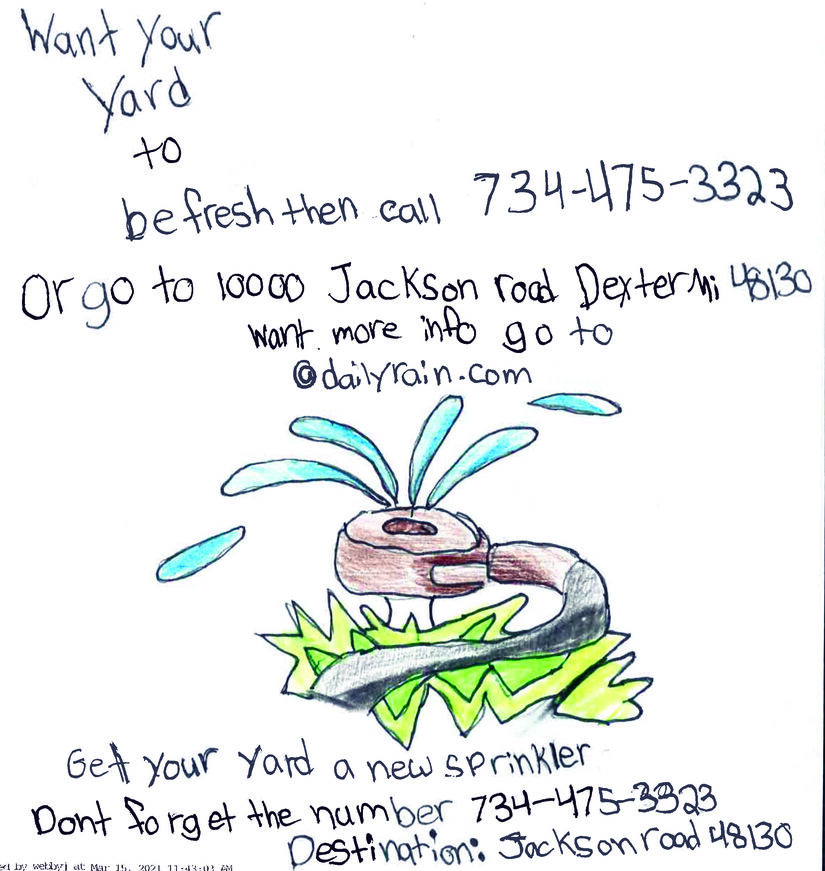 Want Your
Yard
to
be fresh then call 734-475-3323
Or go to 10000 Jackson road Dexter Mi 48130
want more info go to
@dailyrain.com
Get your yard a new sprinkler
Dont forget the number 734-475-3323
Destination: Jackson road 48130
ed by webbyj at Mar 15, 2021 11:43:03 AM